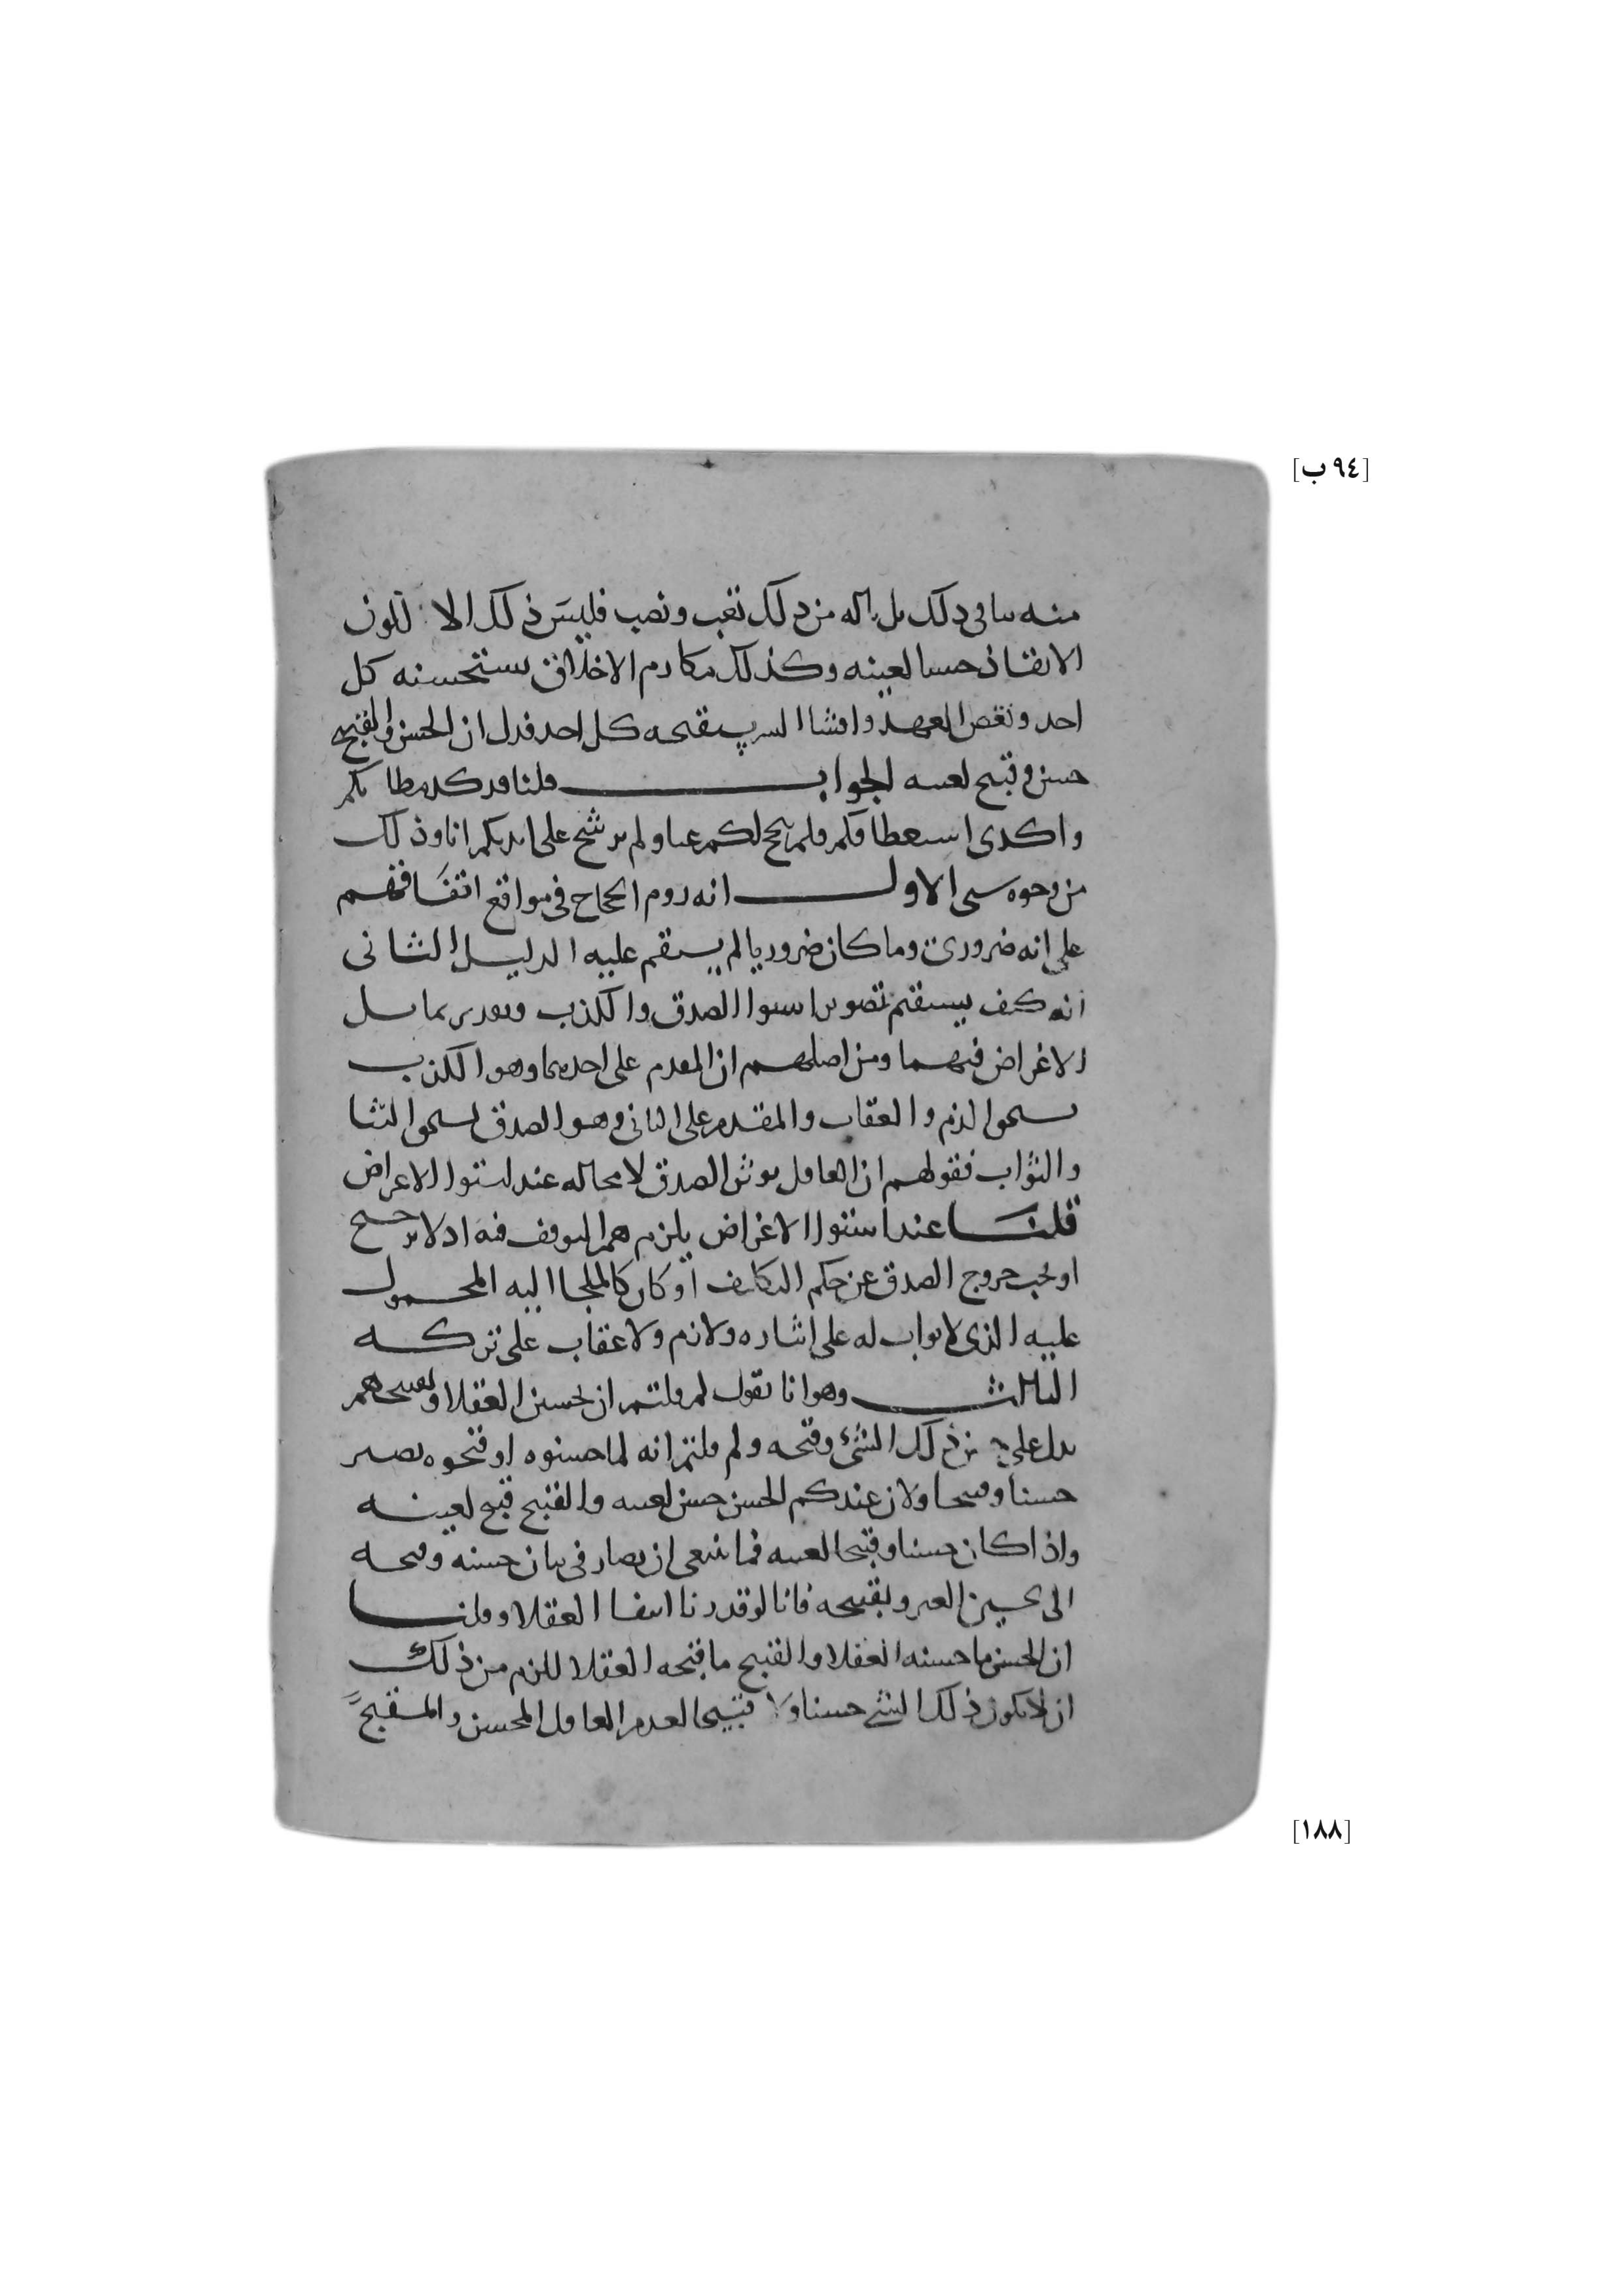 [٩٤ ب]
منه ىىافى ذلك بل ىاله من ذلك تعب ونصب فليس ذلك الا لكون
الانقاذ حسنا لعينه وكذلك مكارم الاخلاق يستحسنه كل
احد ونقض العهد وافشا السر يستقبحه كل احد فدل ان الحسن والقبيح
حسن وقبيح لعينه الجواب قلنا قد كدت مطايكم
واكدى استعطافكم فلم ينجح لكم عنا ولم يرشح على ايديكم انا وذلك
من وجوه شتى الاول انه روم الحجاج فى مواقع اتفاقهم
على انه ضرورى وما كان ضروريا لم يستقم عليه الدليل الثانى
انه كيف يستقيم تصوير استوا الصدق والكذب وتقدير تماثل
الاغراض فيهما ومن اصلهم ان المقدم على احدهما وهو الكذب
يستحق الذم والعقاب والمقدم على الثانى وهو الصدق يستحق الثنا
والثواب فقولهم ان العاقل يوثر الصدق لا محاله عند استوا الاغراض
قلنا عند استوا الاغراض يلزمهم التوقف فيه اذ لا ترجيح
او يجب خروج الصدق عن حكم التكليف او كان كالملجا اليه المحمول
عليه الذى لا ثواب له على ايثاره ولا ذم ولا عقاب على تركه
الثالث وهو انا نقول لم قلتم ان تحسين العقلا وتقبيحهم
يدل على حسن ذلك الشئ وقبحه ولم قلتم انه لما حسنوه او قبحوه يصير
حسنا وقبيحا ولان عندكم الحسن حسن لعينه والقبيح قبيح لعينه
واذا كان حسنا وقبيحا لعينه فما ينبغى ان يصار فى بيان حسنه وقبحه
الى تحسين الغير وتقبيحه فانا لو قدرنا انتفا العقلا وقلنا
ان الحسن ما حسنه العقلا والقبيح ما قبحه العقلا للزم من ذلك
ان لا يكون ذلك الشى حسنا ولا قبيحا لعدم العاقل المحسن والمقبح
[١٨٨]